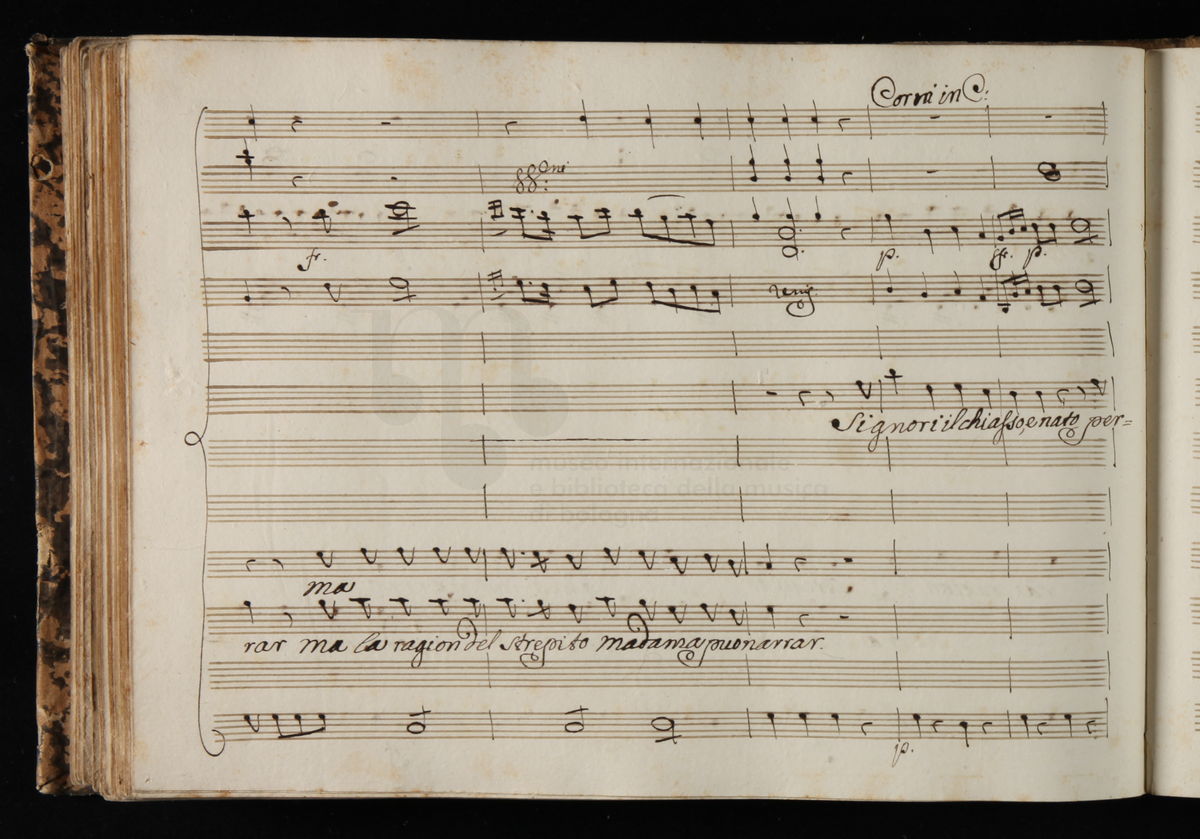 Corni in C:
f.
p. ff. p.
unis.
Signori il chiasso, e nato per=
museo internazionale
e biblioteca della musica
di bologna
ma
rar ma la ragion del strepito madama puo narrar.
p.